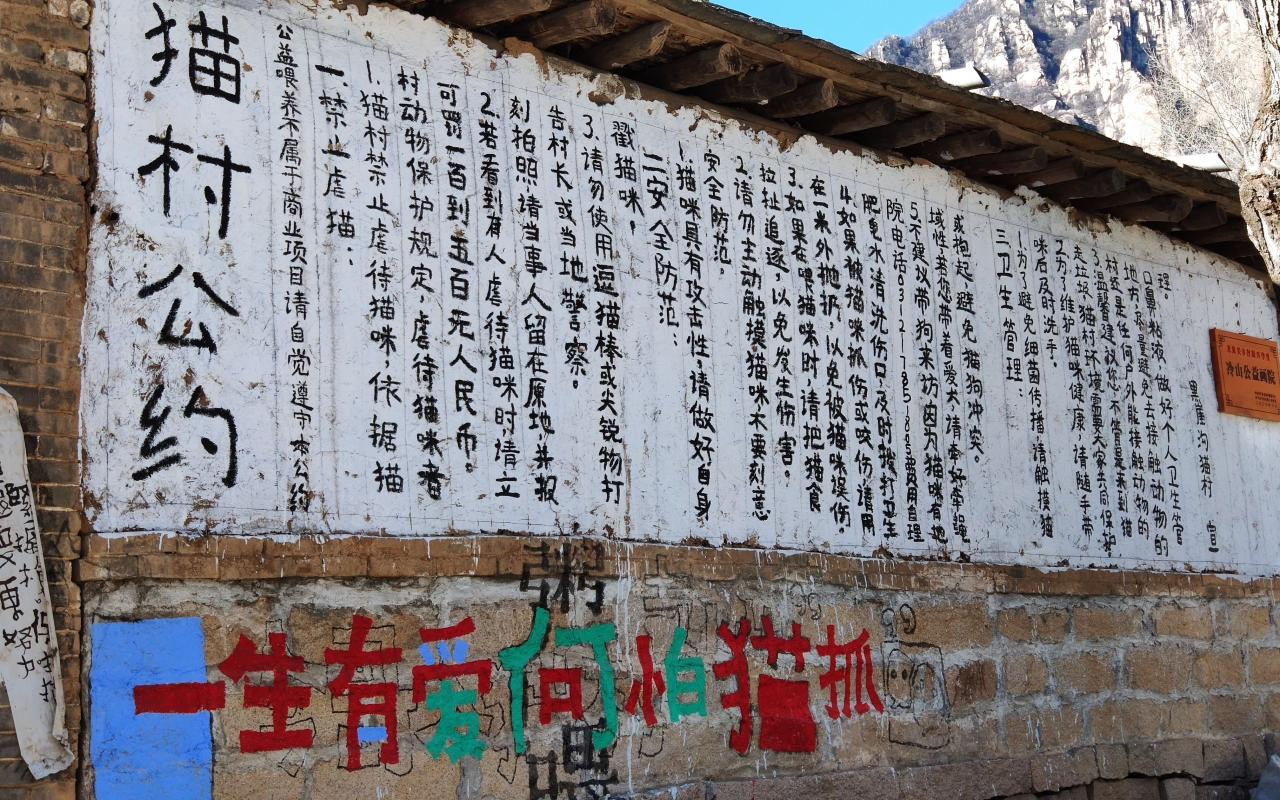 猫村公约
公益喂养不属于商业项目请自觉遵守本公约
一.禁止虐猫.
1.猫村禁止虐待猫咪,依据猫
村动物保护规定,虐待猫咪者
可罚一百到五百元人民币。
2.若看到有人虐待猫咪时请立
刻拍照请当事人留在原地,并报
告村长或当地警察。
3.请勿使用逗猫棒或尖锐物打
戳猫咪,
二安全防范:
1.猫咪具有攻击性,请做好自身
安全防范。
2.请勿主动触摸猫咪不要刻意
拉扯追逐,以免发生伤害。
3.如果在喂猫咪时,请把猫食
在一米外抛扔,以免被猫咪误伤
4.如果被猫咪抓伤或咬伤请用
肥皂水清洗伤口及时拨打卫生
院电话 费用自理
5.不建议带狗来访因为猫咪有地
域性若您带着爱犬,请牵好牵绳
或抱起,避免猫狗冲突。
三卫生管理:
1.为了避免细菌传播请触摸猫
咪后及时洗手.
2.为了维护猫咪健康,请随手带
走垃圾猫村环境需要大家共同保护
3.温馨建议您,不管是来到猫
村还是任何户外能接触动物的
地方尽量避免去接触动物的
口鼻粘液,做好个人卫生管
理。
黑崖沟猫村 宣
冷山公益画院
一生有爱何怕猫抓